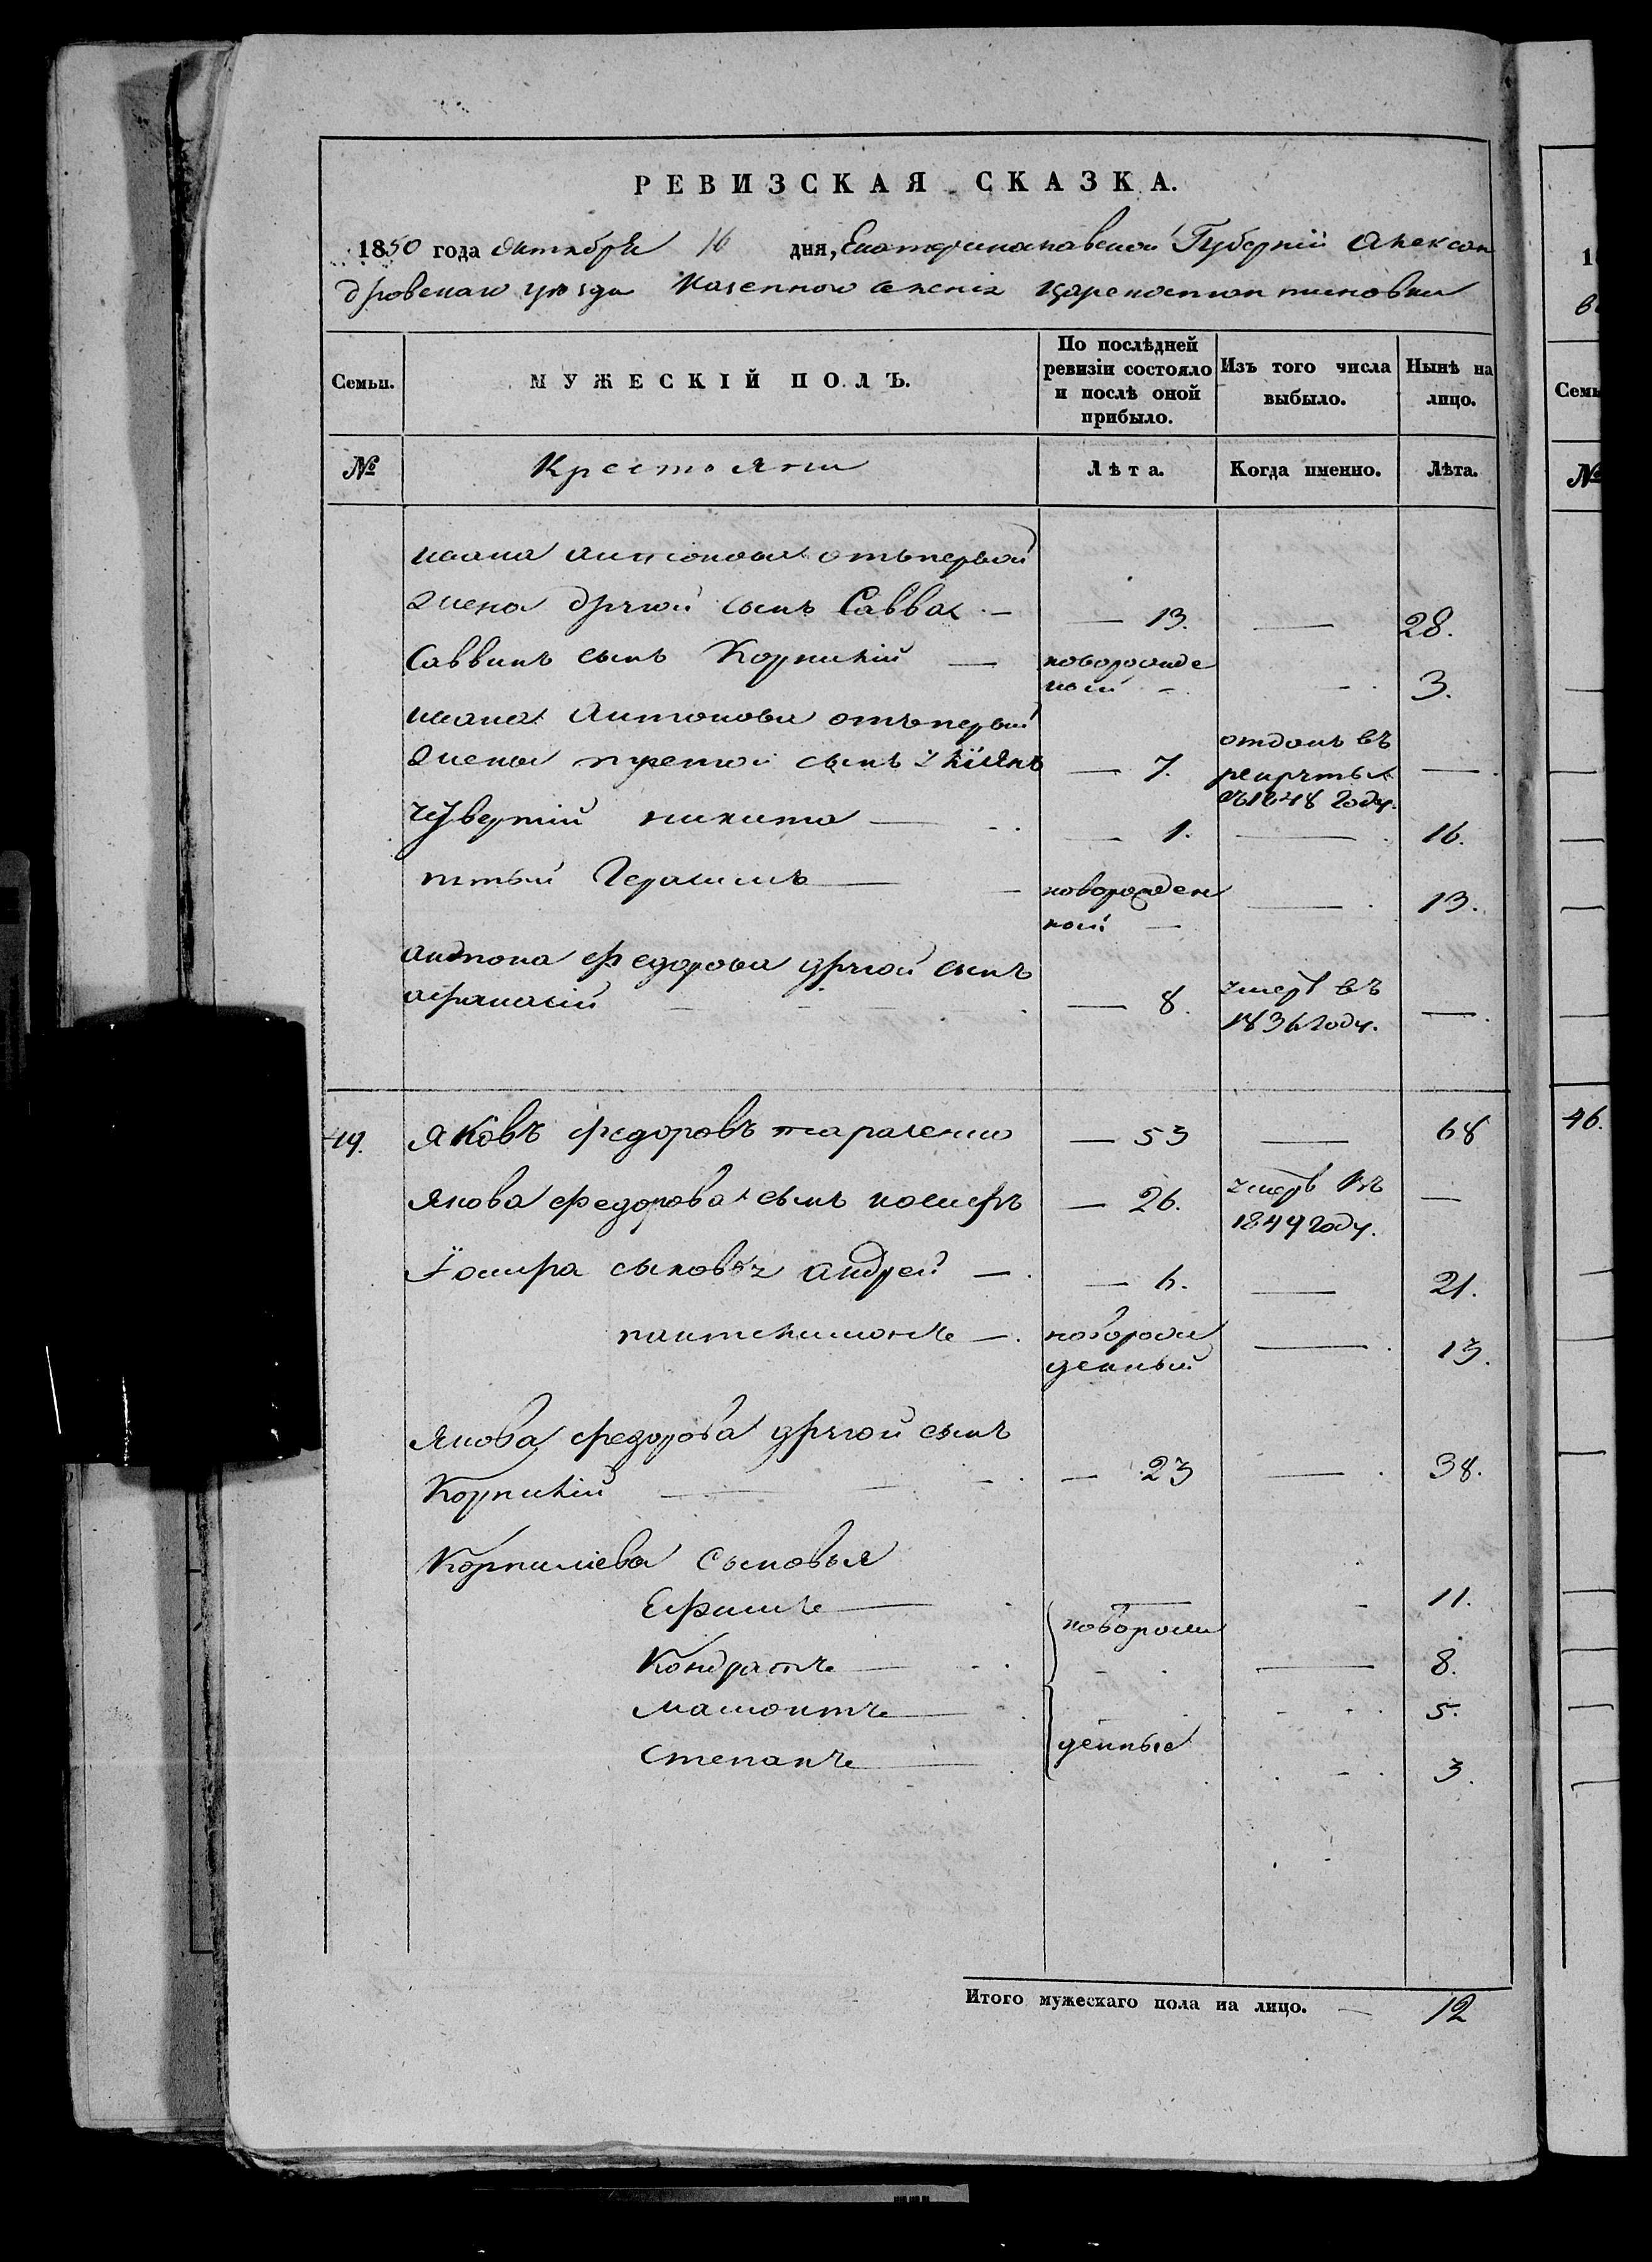 РЕВИЗСКАЯ СКАЗКА.
1850 года Октября 16 дня, Екатеринославской Губернiи Алексан
дровскаго уезда Казенного селенiя Цареконстантиновки
Семьи. МУЖЕСКІЙ ПОЛЪ. По послѣдней ревизіи состояло и послѣ оной прибыло. Изъ того числа выбыло. Нынѣ на лицо.
№ Крестояни Лѣта. Когда именно. Лѣта.
ивана антонова отъ первой
жена другой сынъ Савва — 13. — 28.
Саввинъ сынъ Корнилій — новорожде
ной 3.
ивана Антонова отъ первый
жены третой сынъ — 7. отданъ въ рекруты въ 1848 году. —
никита — 1. — 16.
пятый Герасимъ — новорожден
ной — 13.
антона федорова другой сынъ
афанасій — 8. умерв въ 1836 году. —
49. Яковъ федоровъ тарасенко — 53 — 68
Якова федорова сынъ иосифъ — 26. умерв въ 1849 году. —
Їосифа сыновья андрей — 6. — 21.
пантелимонъ — новорож
денный — 13.
Якова федорова другой сынъ
Корнилій — 23 — 38.
Корнилiева Сыновья
Ефимъ — новорож 11.
Кондратъ — 8.
мамонтъ — 5.
Степанъ — денные 3.
Итого мужескаго пола на лицо. — 12
1
Семь
№
46.